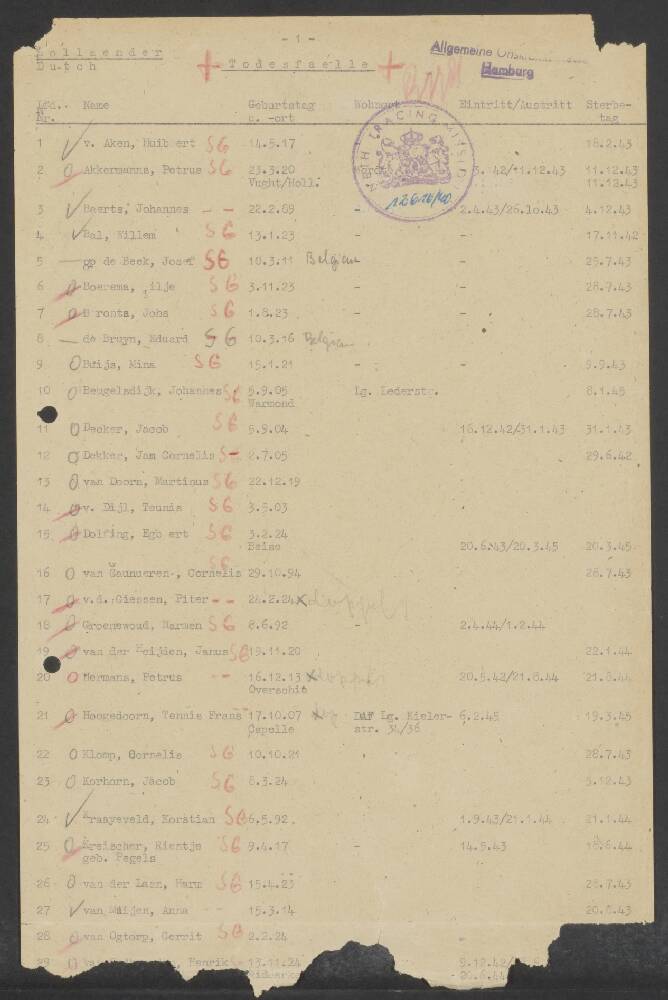 - 1 -
Hollaender
Dutch
+ Todesfaelle +
Allgemeine
Hamburg
Lfd. Nr. Name Geburtstag u. -ort Wohnort Eintritt/Austritt Sterbe-tag
TRACING MISSIO
1 v. Aken, Huibert SG 14.5.17 - 18.2.43
2 Akkermanns, Petrus SG 23.3.20 .42/11.12.43 11.12.43
Vught/Holl. 11.12.43
3 Baerts, Johannes - - 22.2.89 - 2.4.43/26.10.43 4.12.43
4 Bal, Willem SG 13.1.23 - - 17.11.42
5 op de Beek, Josef SG 10.3.11 Belgian - - 25.7.43
6 Boerema, SG 3.11.23 - - 28.7.43
7 SG 1.8.23 - - 28.7.43
8 de Bruyn, Eduard SG 10.3.16 Belgian
9 Buijs, Mina SG 15.1.21 - - 9.9.43
10 Beugelsdijk, Johannes SG 5.9.05 Lg. Lederstr. 8.1.45
Warmond
11 Decker, Jacob SG 5.9.04 16.12.42/31.1.43 31.1.43
12 Dekker, Jan Cornelis S- 2.7.05 29.6.42
13 van Doorn, Martinus SG 22.12.19
14 v. Dijl, Teunis SG 3.5.03
15 Dolfing, Egbert SG 3.2.24
20.6.43/20.3.45 20.3.45
16 van Cornelis SG 29.10.94 28.7.43
17 v.d. Giessen, Piter - - 24.2.24 x
18 Groenewoud, Harmen SG 8.6.92 - 2.4.44/1.2.44
19 van der Heijden, Janus SG 19.11.20 22.1.44
20 Hermans, Petrus - - 16.12.13 x 20.5.42/21.8.44 21.8.44
Overschie
21 Hoogedoorn, Tennis Frans 17.10.07 x DAF Lg. Kieler- 6.2.45 19.3.45
Capelle str. 34/36
22 Klomp, Cornelis SG 10.10.21 28.7.43
23 Korhorn, Jacob SG 8.3.24 5.12.43
24 Kraayeveld, Korstian SG 6.5.92 - 1.9.43/21.1.44 21.1.44
25 Kreischer, Rientje SG 9.4.17 - 14.5.43 18.6.44
geb. Pegels
26 van der Laan, Harm SG 15.4.23 28.7.43
27 van Muijen, Anna - - 15.3.14 20.6.43
28 van Ogtorp, Gerrit SG 2.2.24 -
29 Henrik - 13.11.24 - 9.12.42/
20.6.44